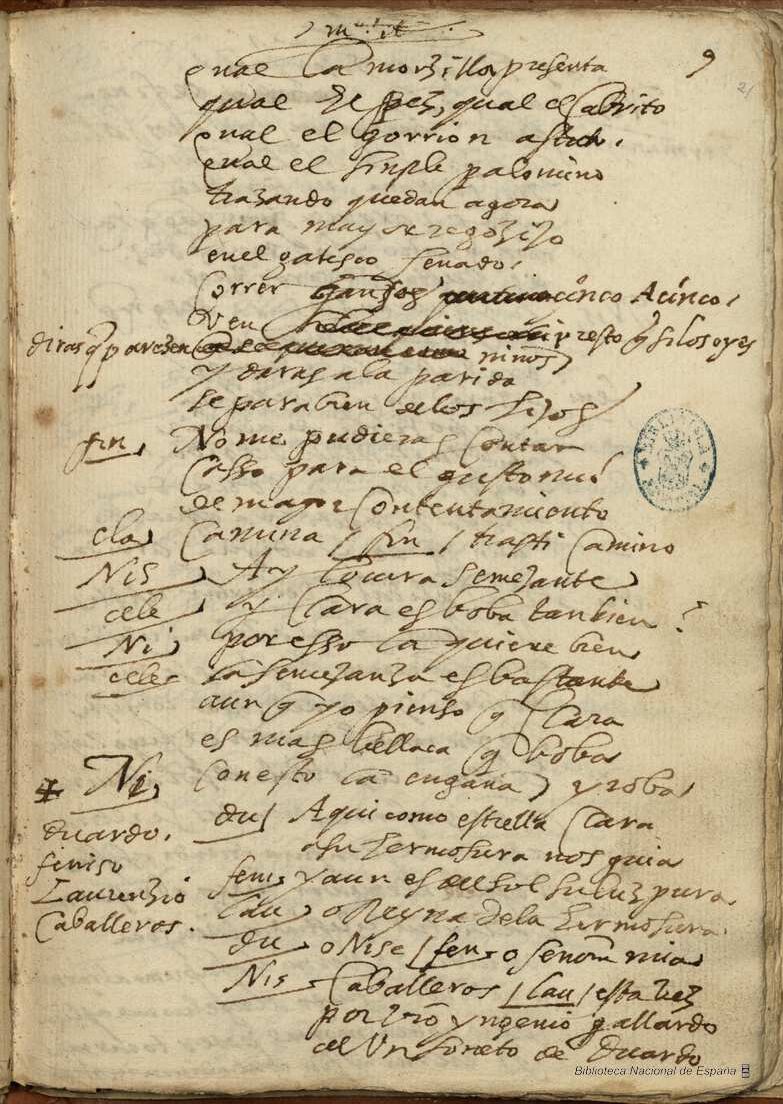 9
21
qual la morzilla presenta
qual el pez, qual el Cabrito
qual el gorrion astuto.
qual el simple palomino
trazando quedan agora
para mayor regozijo
en el gatesco senado.
Correr gansos cinco A cinco.
Ven presto q si los oyes
diras q parezen ninos
y daras a la parida
el parabien de los hijos
fin, No me pudieras Contar
Casso para el gusto mio
de mayor Contentamiento
cla Camina / fin / tras ti Camino
Nis Ay locura semejante
cele y Clara es boba tanbien?
Ni por esso la quiere bien
cele la semejanza es bastante
aun q yo pienso q Clara
es mas bellaca q boba
Ni Con esto la engaña y roba
duardo.
feniso
Laurenzio
Caballeros.
du Aqui como estrella Clara
a su hermosura nos guia
fen y aun es del sol su luz pura
lau o Reyna de la hermosura.
du o Nise / fen o señora mia
Nis Caballeros / lau / esta vez
por vro yngenio gallardo
de Un soneto de Duardo
Biblioteca Nacional de España